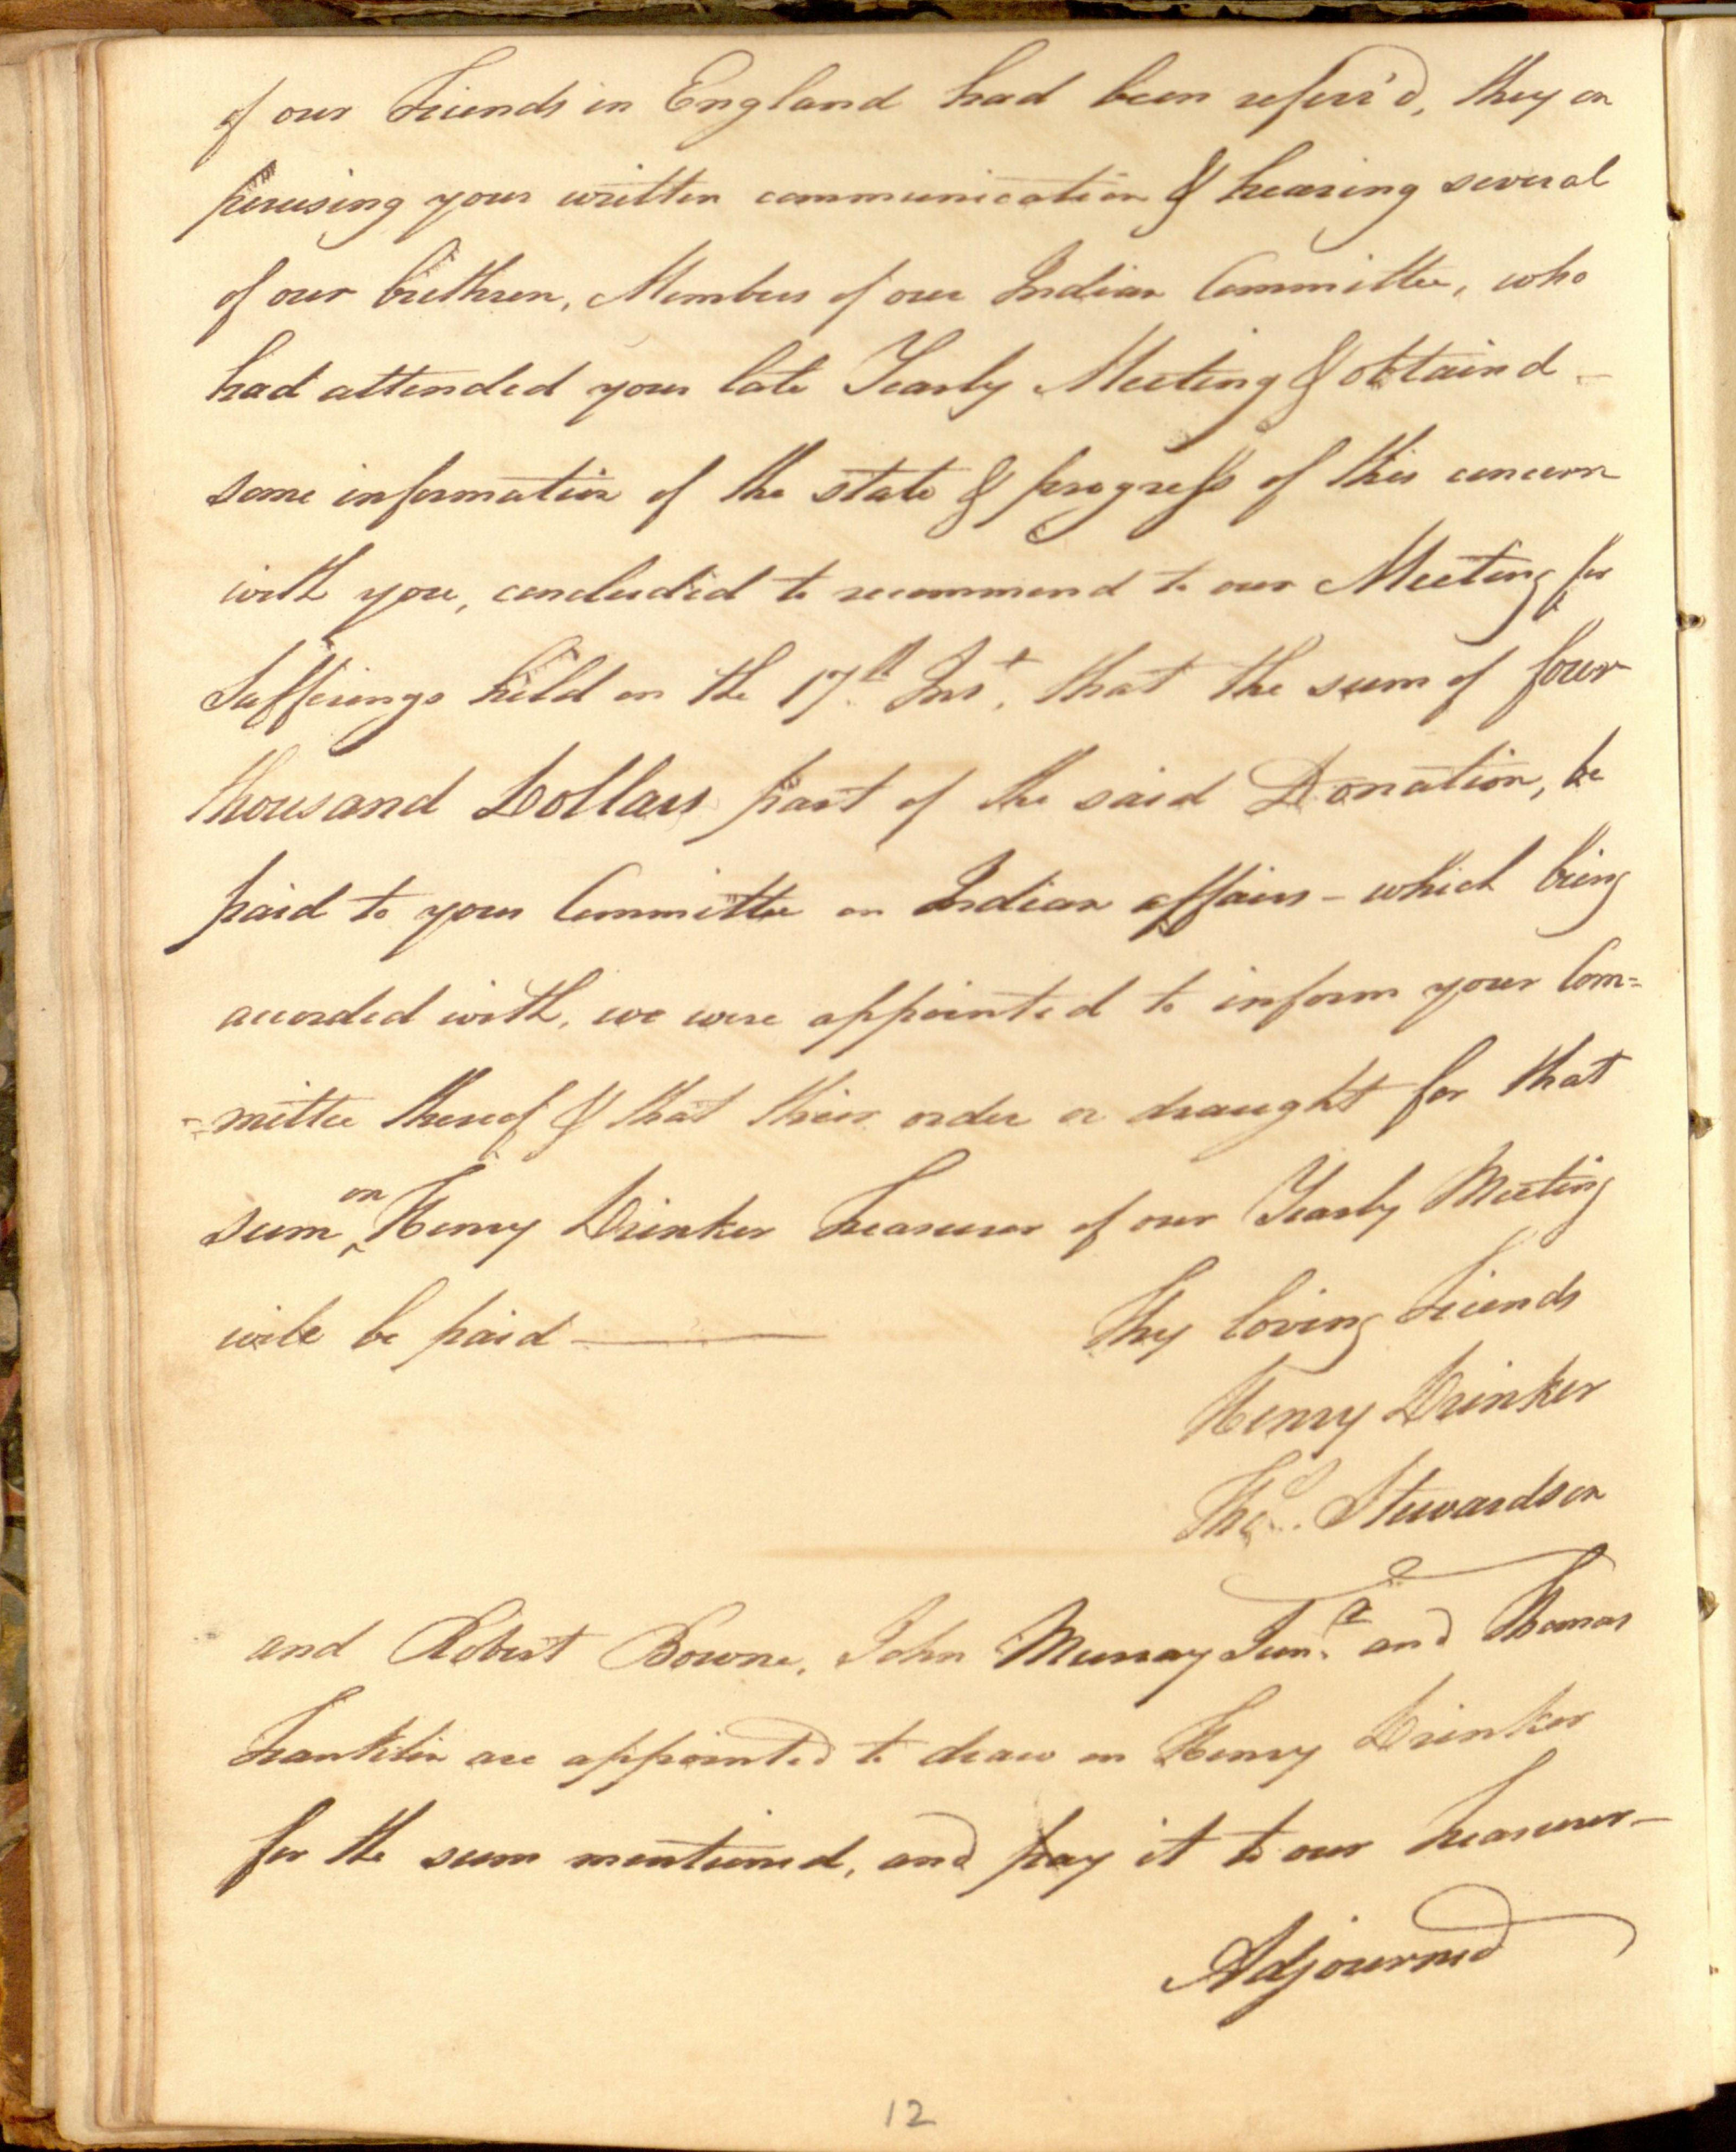 of our Friends in England had been referr'd, they on
perusing your written communication & hearing several
of our brethren, Members of our Indian Committee, who
had attended your late Yearly Meeting & obtaind -
some information of the state & progress of this concern
with you, concluded to recommend to our Meeting for
Sufferings held on the 17th Inst, that the sum of four
thousand Dollars part of the said Donation, be
paid to your Committee on Indian affairs - which being
accorded with, we were appointed to inform your Com=
=mittee thereof & that their order or draught for that
sum on Henry Drinker Treasurer of our Yearly Meeting
will be paid —— Thy loving Friends
Henry Drinker
Thos. Stewardson
and Robert Bowne, John Murray Junr. and Thomas
Franklin are appointed to draw on Henry Drinker
for the sum mentioned, and pay it to our Treasurer -
Adjourned
12